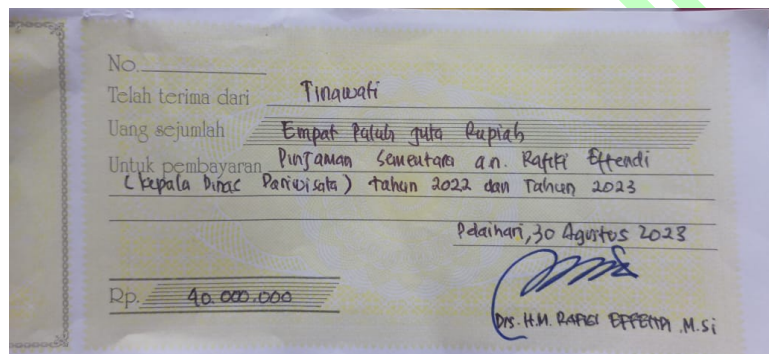 No.
Telah terima dari Tinawati
Uang sejumlah Empat Puluh Juta Rupiah
Untuk pembayaran Pinjaman Sementara an. Rafiki Effendi
(Kepala Dinas Pariwisata) tahun 2022 dan Tahun 2023
Pelaihari, 30 Agustus 2023
Rp. 40.000.000
Drs. H.M. RAFIKI EFFENDI .M.Si